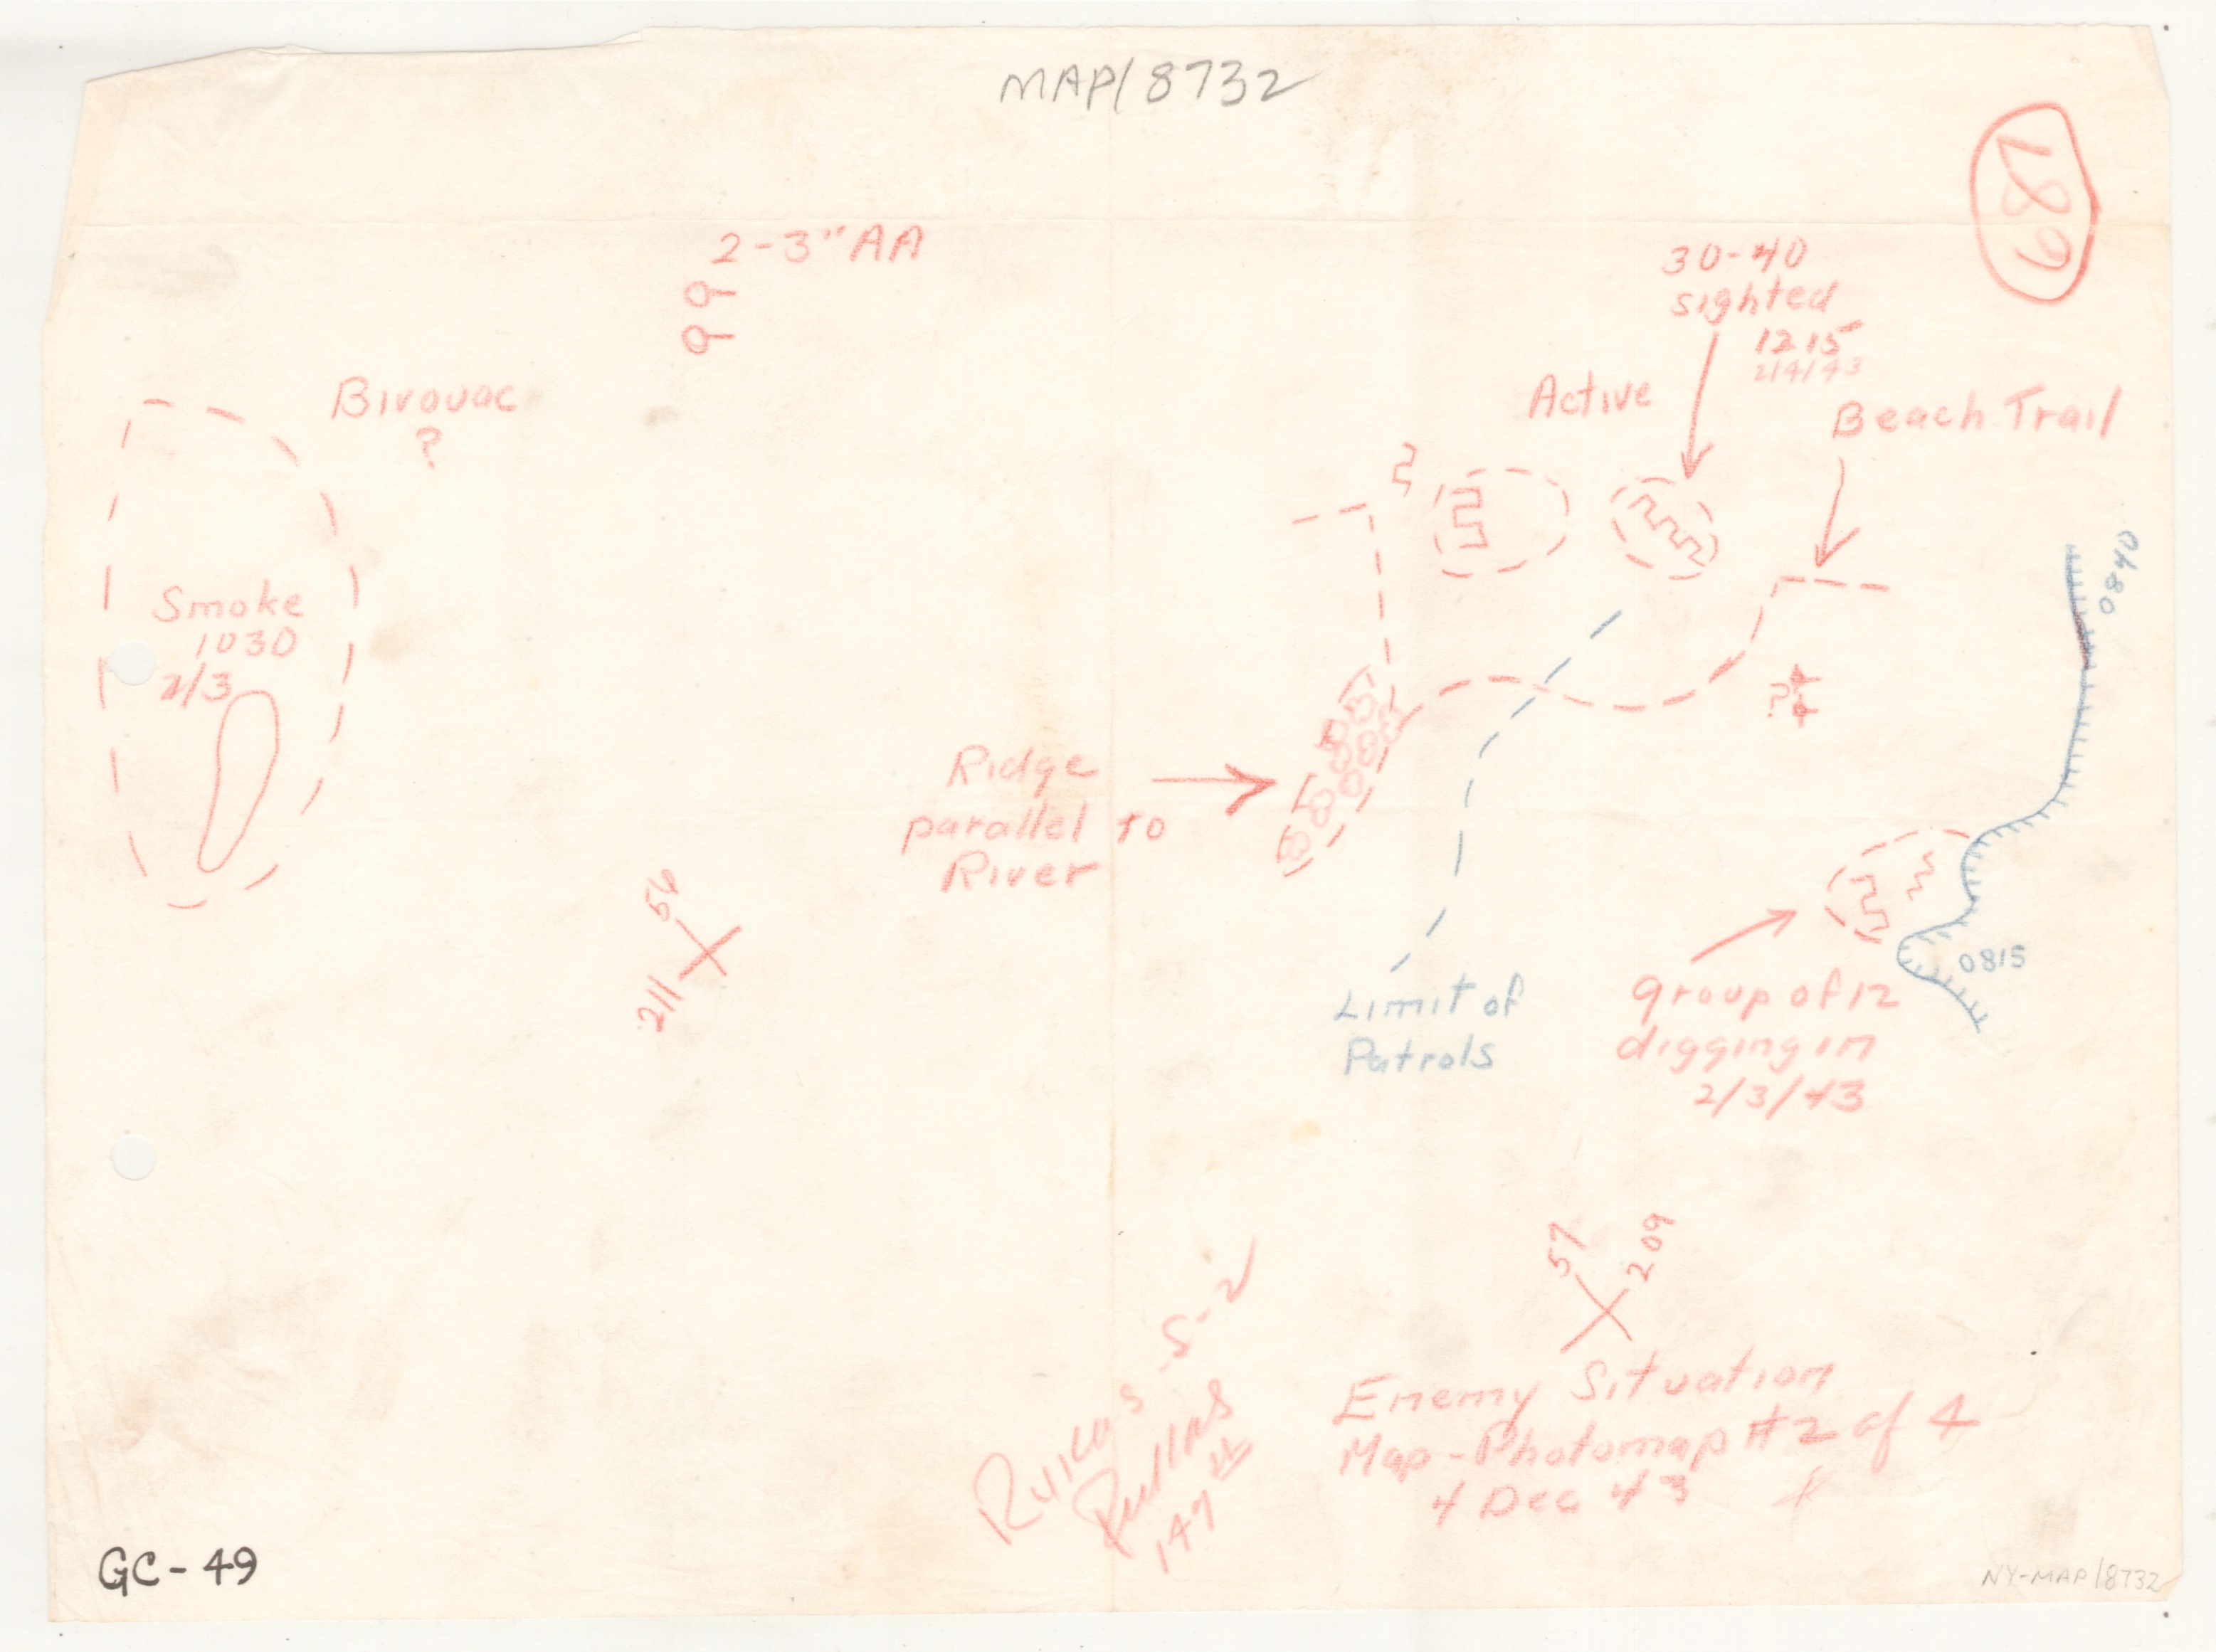 MAP/8732
687
2-3" AA
30-40
sighted
1215
2/4/43
Active
Beach Trail
Bivouac
?
0840
Smoke
1030
2/3
?
Ridge
parallel to
River
56
211
0815
Limit of
Patrols
group of 12
digging in
2/3/43
57
209
S-2
147
Enemy Situation
Map - Photomap #2 of 4
4 Dec 43
GC-49
NY-MAP/8732